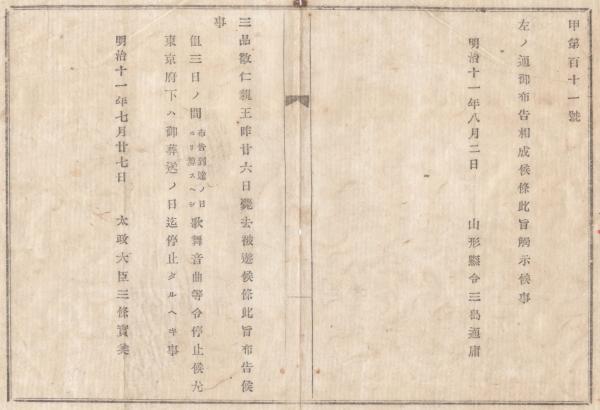 甲第百十一號
左ノ通御布告相成候條此旨觸示候事
明治十一年八月二日　山形縣令三島通庸
三品敬仁親王昨廿六日薨去被遊候條此旨布告候
事
但三日ノ間布告到達ノ日ヨリ算スヘシ歌舞音曲等令停止候尤
東京府下ハ御葬送ノ日迄停止タルヘキ事
明治十一年七月廿七日　太政大臣三條實美